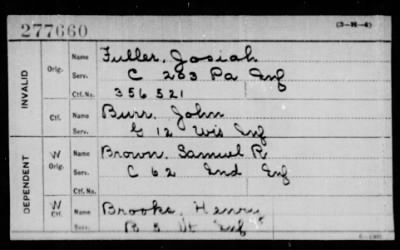 277660
(3-H-4)
INVALID
Orig.
Name Fuller, Josiah
Serv. C 203 Pa Inf
Ctf. No. 356521
Ctf.
Name Burr, John
Serv. G 12 Wis Inf
DEPENDENT
W
Orig.
Name Brown, Samuel R
Serv. C 62 Ind Inf
Ctf. No.
W
Ctf.
Name Brooks, Henry
Serv. B 5 Vt Inf